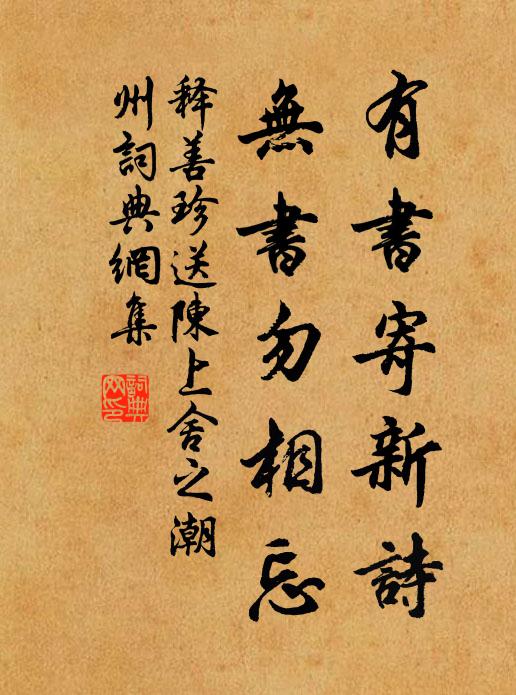 有書寄新詩
無書勿相忘
释善珍送陳上舍之潮
州詞典網集
詞典
网印